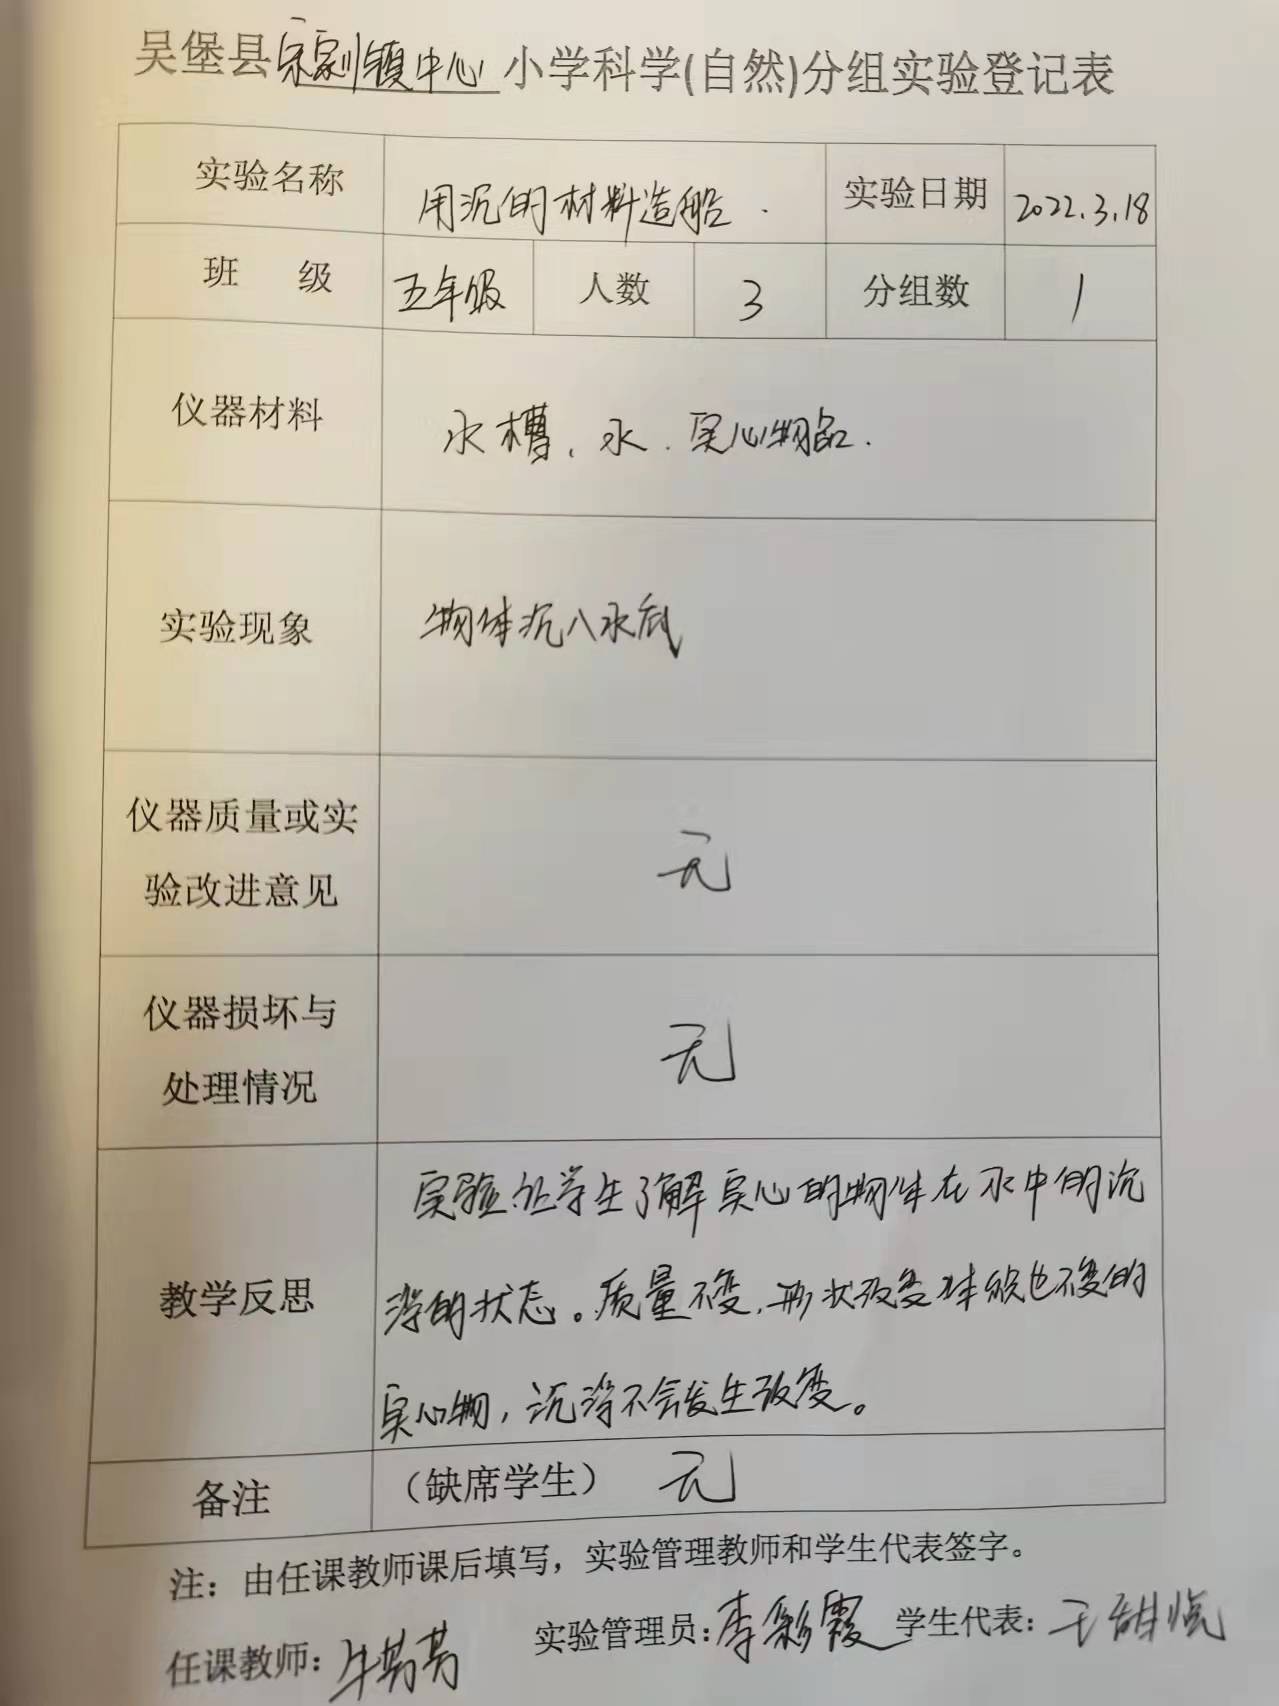 吴堡县宋家川镇中心小学科学(自然)分组实验登记表
实验名称 用沉的材料造船. 实验日期 2022.3.18
班 级 五年级 人数 3 分组数 1
仪器材料 水槽、水.实心物品.
实验现象 物体沉入水底
仪器质量或实
验改进意见 无
仪器损坏与
处理情况 无
实验让学生了解实心的物体在水中的沉
教学反思 浮的状态。质量不变,形状改变体积也不变的
实心物,沉浮不会发生改变。
备注 (缺席学生) 无
注:由任课教师课后填写,实验管理教师和学生代表签字。
任课教师: 实验管理员:李彩霞 学生代表:王甜